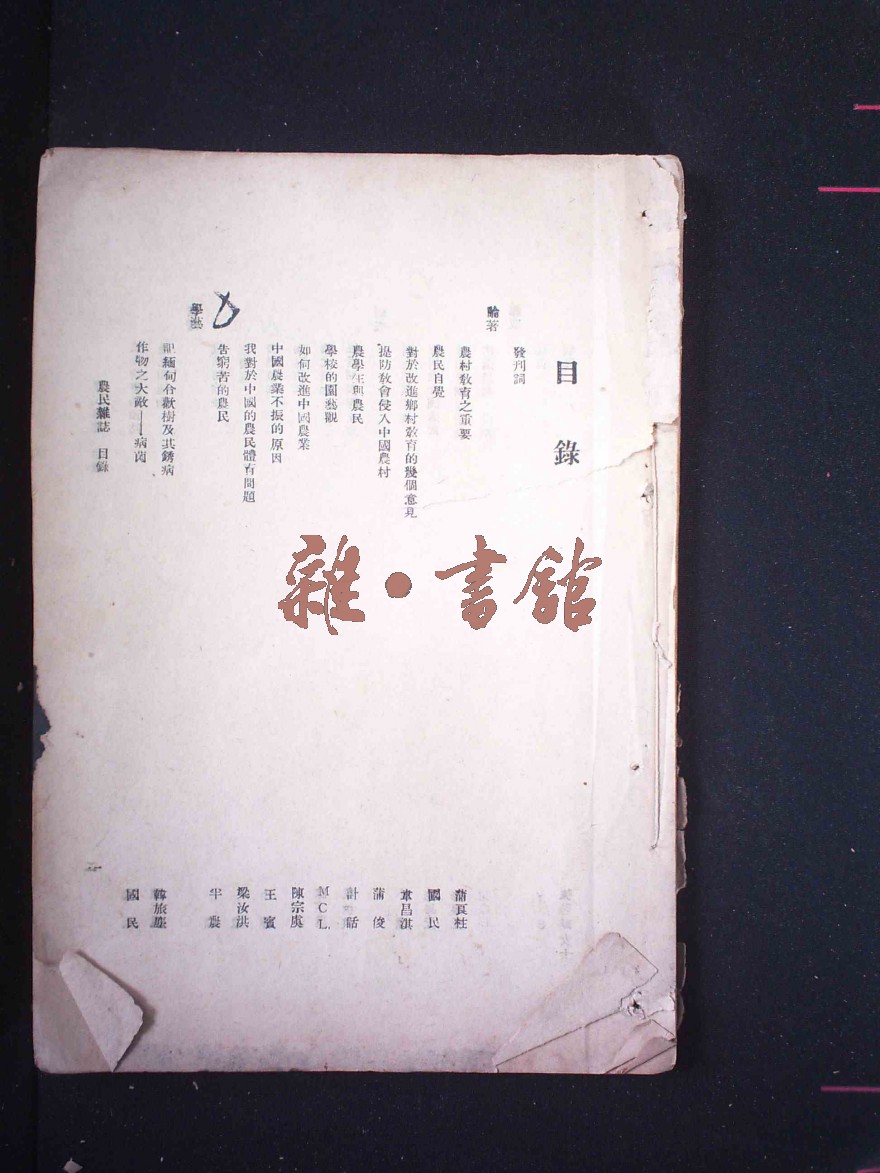 目錄
發刊詞
論著
農村教育之重要 蒲良柱
農民自覺 國民
對於改進鄉村教育的幾個意見 韋昌淇
提防教會侵入中國農村 蒲俊
農學生與農民 計話
學校的園藝觀 MCL
如何改進中國農業 陳宗虞
中國農業不振的原因 王賓
我對於中國的農民體育問題 梁汝洪
告窮苦的農民 半農
學藝
記緬甸合歡樹及其銹病 韓旅塵
作物之大敵——病菌 國民
農民雜誌 目錄
雜·書舘